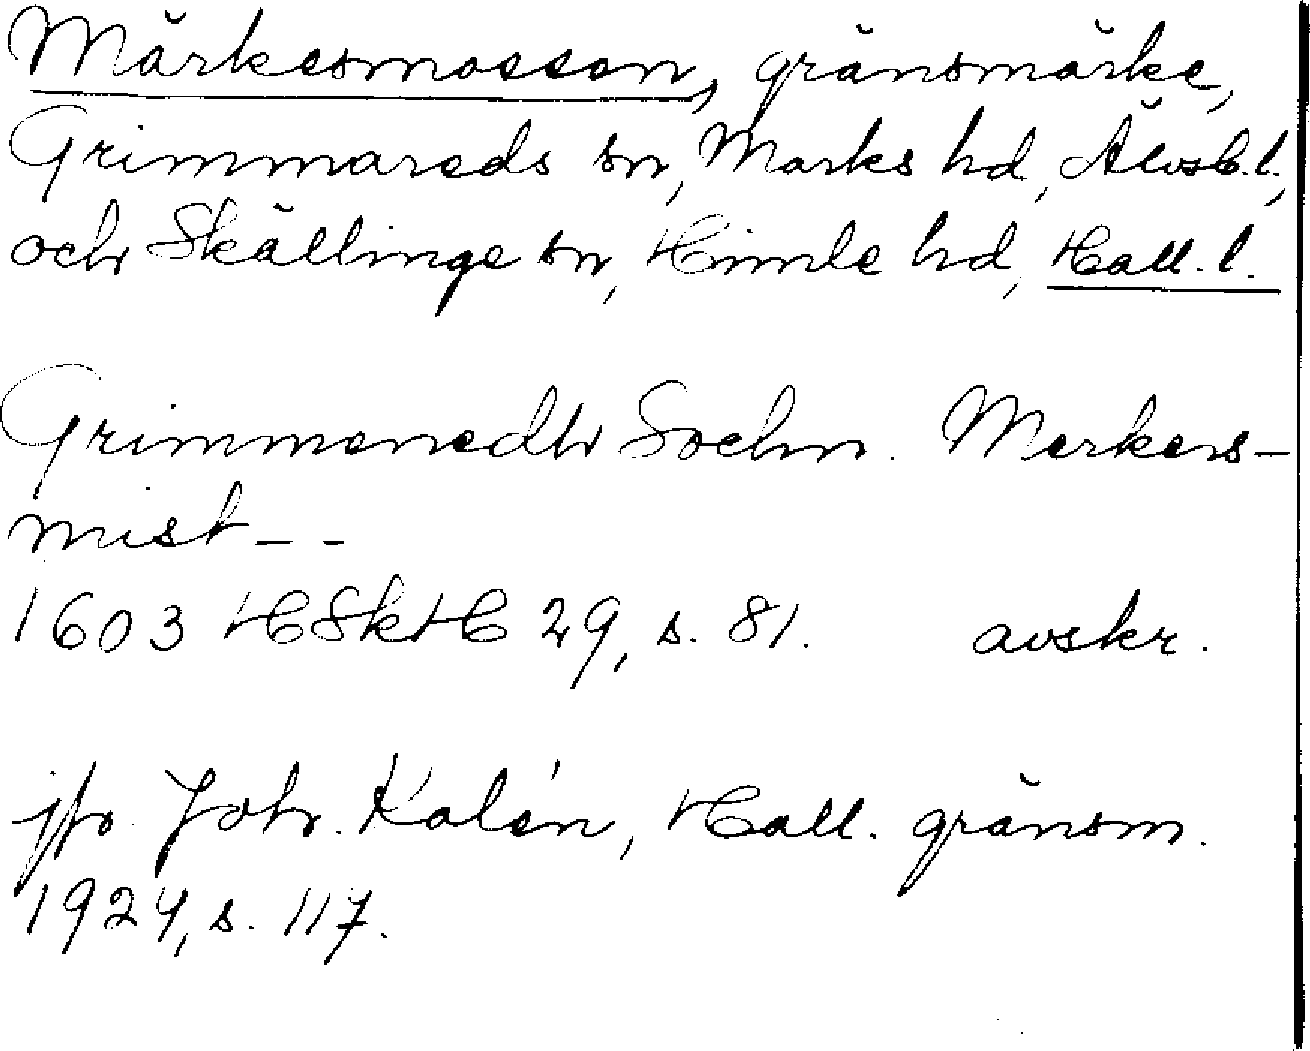 Märkesmossen, gränsmärke,
Grimmareds sn, Marks hd, Älvsb. l.,
och Skällinge sn, Himle hd, Hall. l.
Grimmeredh Sochn. Merkers-
mist--
1603 HSkH 29, s. 81. avskr.
jfr Joh. Kalén, Hall. gränsm.
1924, s. 117.